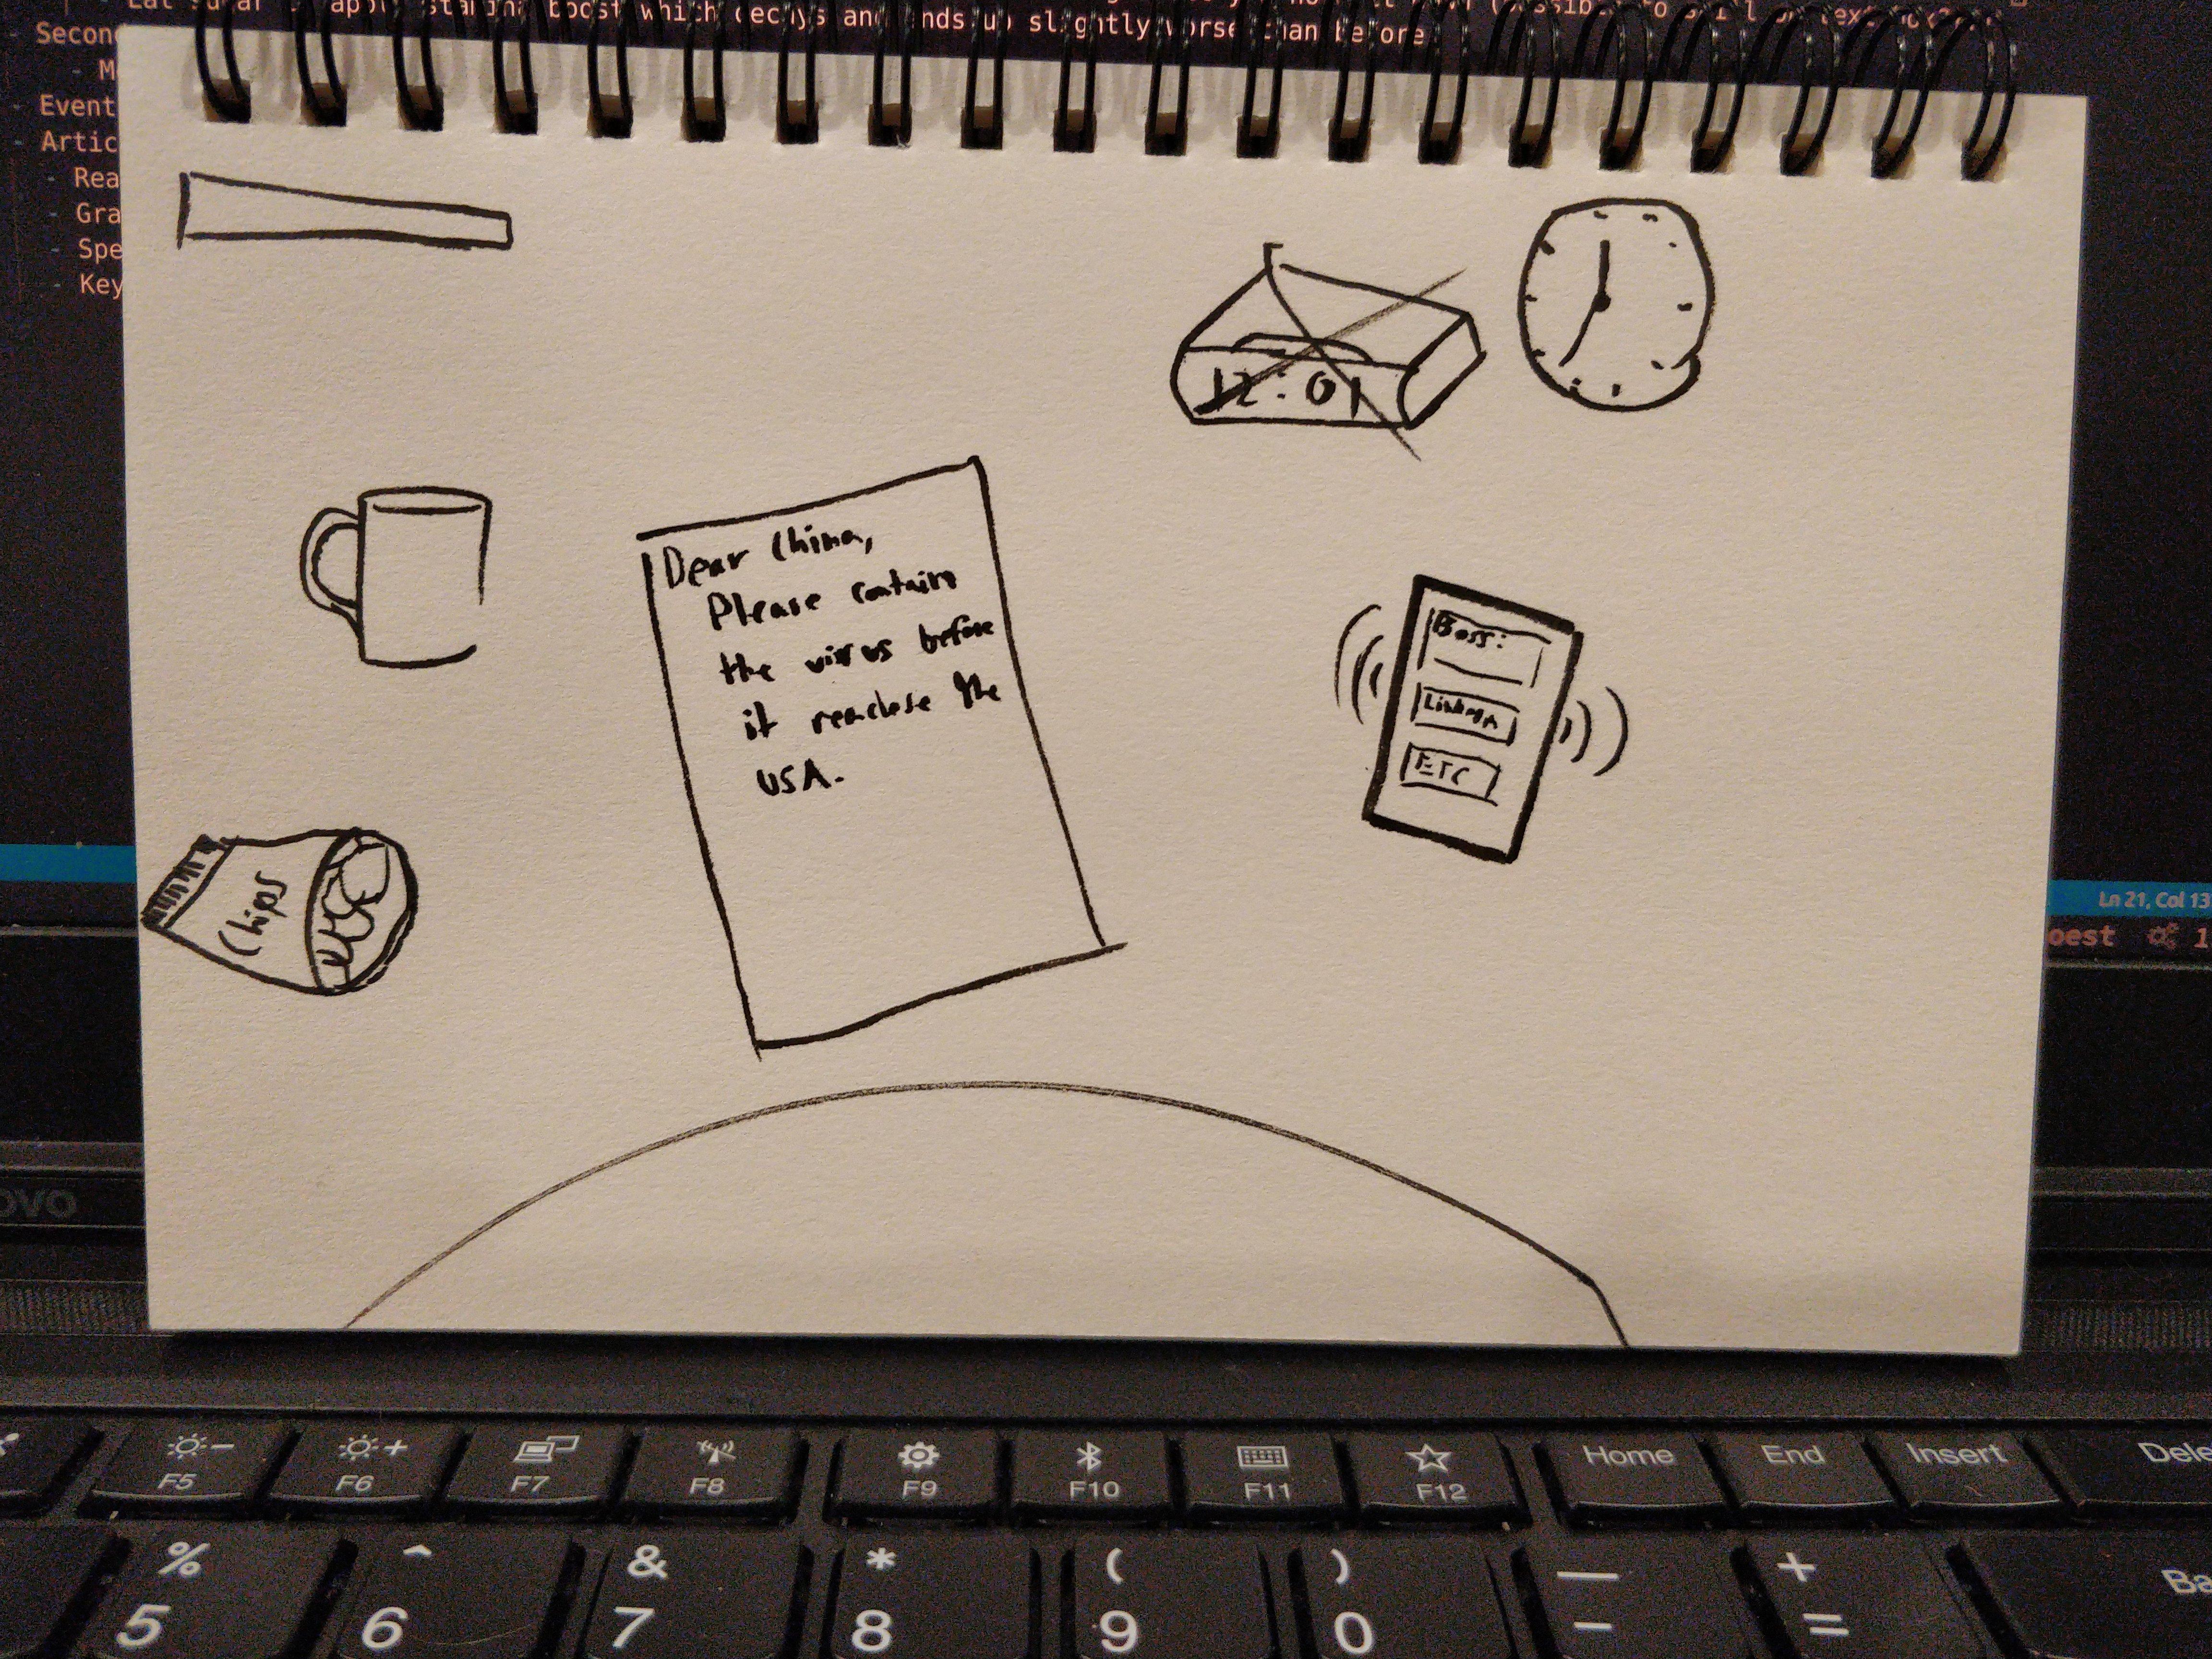 boost which decays and ends up slightly worse than before
Secon
- M
- Event
- Artic
- Rea
- Gra
- Spe
- Key
12:01
Dear China,
Please contain
the virus before
it reaches the
USA.
Boss:
LinkedIn
ETC
Chips
Ln 21, Col 13
oest
1
ovo
F5 F6 F7 F8 F9 F10 F11 F12 Home End Insert Dele
% ^ & * ( ) — +
5 6 7 8 9 0 - = Ba